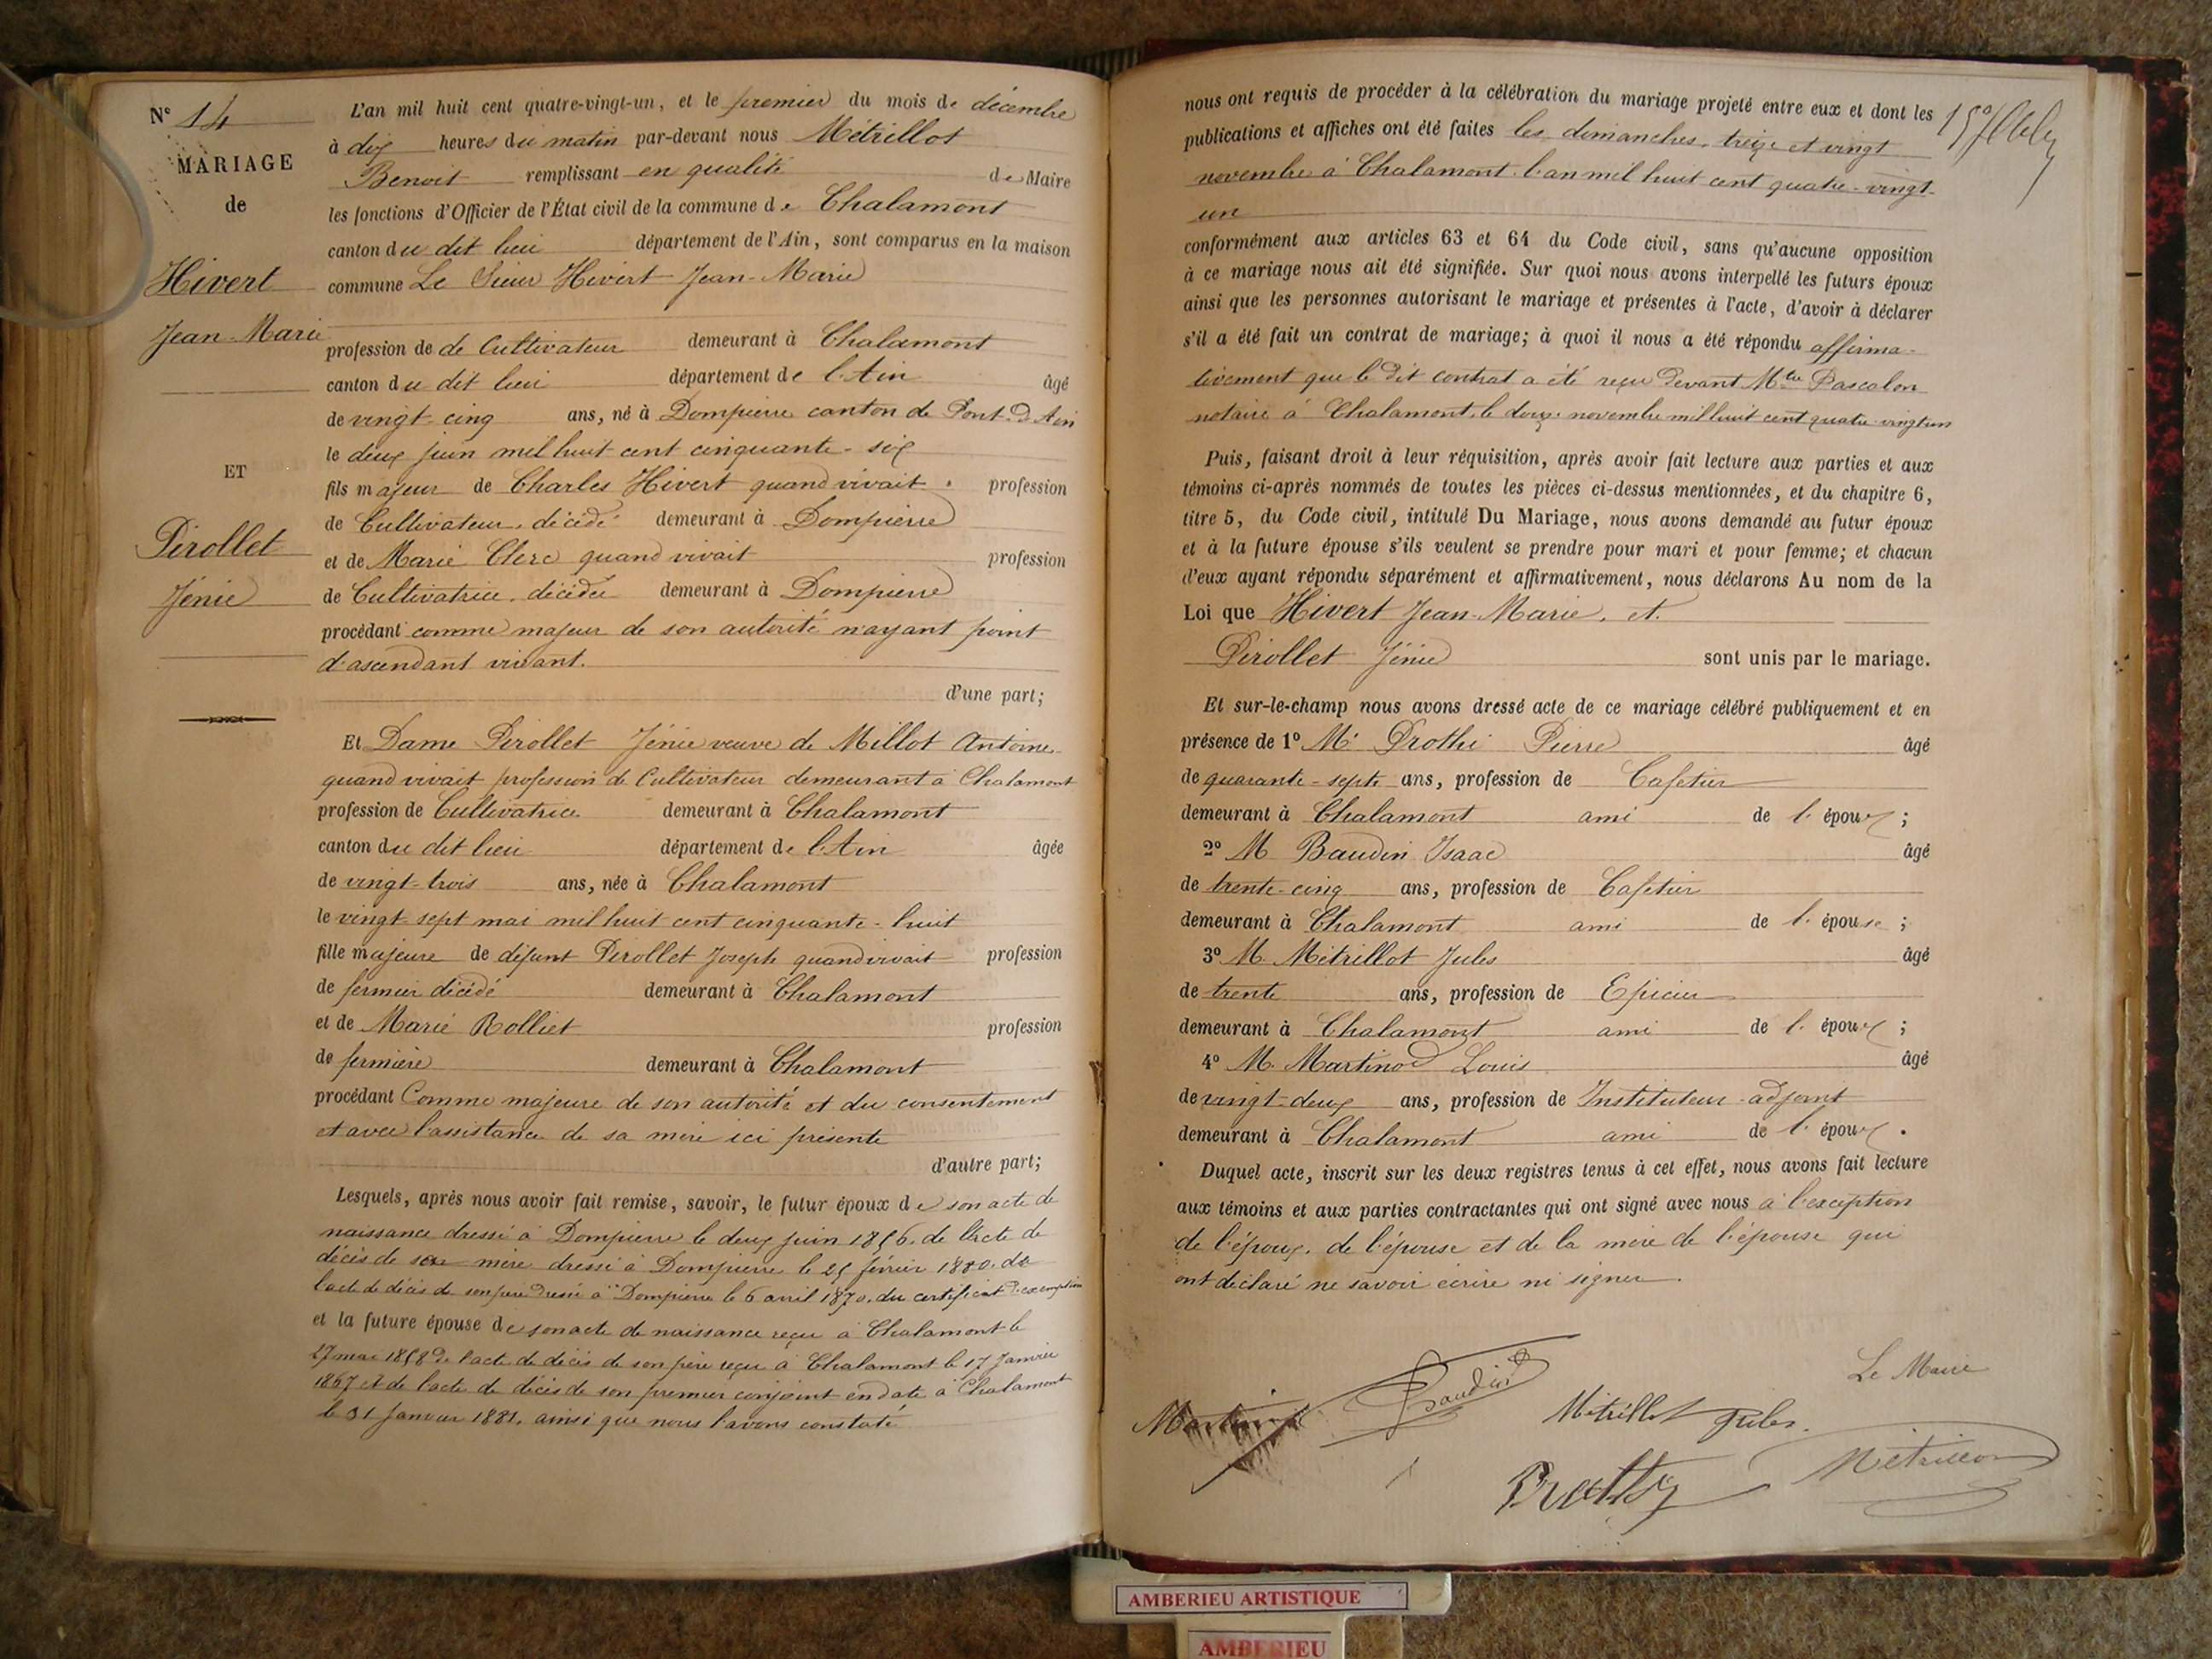 N° 14
MARIAGE
de
Hivert
Jean-Marie
ET
Pirollet
Jénie
L'an mil huit cent quatre-vingt-un, et le premier du mois de décembre
à dix heures du matin par-devant nous Métrillot
Benoit remplissant en qualité de Maire
les fonctions d'Officier de l'État civil de la commune de Chalamont
canton du dit lieu département de l'Ain, sont comparus en la maison
commune Le Sieur Hivert Jean-Marie
profession de de Cultivateur demeurant à Chalamont
canton du dit lieu département de l'Ain âgé
de vingt-cinq ans, né à Dompierre canton de Pont-d'Ain
le deux juin mil huit cent cinquante-six
fils majeur de Charles Hivert quand vivait profession
de Cultivateur, décédé demeurant à Dompierre
et de Marie Clerc quand vivait profession
de Cultivatrice, décédée demeurant à Dompierre
procédant comme majeur de son autorité n'ayant point
d'ascendant vivant.
d'une part;
Et Dame Pirollet Jénie veuve de Millot Antoine
quand vivait profession de Cultivateur demeurant à Chalamont
profession de Cultivatrice demeurant à Chalamont
canton du dit lieu département de l'Ain âgée
de vingt-trois ans, née à Chalamont
le vingt-sept mai mil huit cent cinquante-huit
fille majeure de défunt Pirollet Joseph quand vivait profession
de fermier décédé demeurant à Chalamont
et de Marie Rolliet profession
de fermière demeurant à Chalamont
procédant Comme majeure de son autorité et du consentement
et avec l'assistance de sa mère ici présente
d'autre part;
Lesquels, après nous avoir fait remise, savoir, le futur époux de son acte de
naissance dressé à Dompierre le deux juin 1856. de l'acte de
décès de sa mère dressé à Dompierre le 25 février 1880. de
l'acte de décès de son père dressé à Dompierre le 6 avril 1870. du certificat d'exemption
et la future épouse de son acte de naissance reçu à Chalamont le
27 mai 1858 de l'acte de décès de son père reçu à Chalamont le 17 Janvier
1867 et de l'acte de décès de son premier conjoint en date à Chalamont
le 31 Janvier 1881. ainsi que nous l'avons constaté
nous ont requis de procéder à la célébration du mariage projeté entre eux et dont les
publications et affiches ont été faites les dimanches, treize et vingt
novembre à Chalamont l'an mil huit cent quatre-vingt-
un
conformément aux articles 63 et 64 du Code civil, sans qu'aucune opposition
à ce mariage nous ait été signifiée. Sur quoi nous avons interpellé les futurs époux
ainsi que les personnes autorisant le mariage et présentes à l'acte, d'avoir à déclarer
s'il a été fait un contrat de mariage; à quoi il nous a été répondu affirma-
tivement que le dit contrat a été reçu devant Mtre Pascalon
notaire à Chalamont, le douze novembre mil huit cent quatre-vingt un
Puis, faisant droit à leur réquisition, après avoir fait lecture aux parties et aux
témoins ci-après nommés de toutes les pièces ci-dessus mentionnées, et du chapitre 6,
titre 5, du Code civil, intitulé Du Mariage, nous avons demandé au futur époux
et à la future épouse s'ils veulent se prendre pour mari et pour femme; et chacun
d'eux ayant répondu séparément et affirmativement, nous déclarons Au nom de la
Loi que Hivert Jean-Marie, et
Pirollet Jénie sont unis par le mariage.
Et sur-le-champ nous avons dressé acte de ce mariage célébré publiquement et en
présence de 1° Mr Prothi Pierre âgé
de quarante-septe ans, profession de Cafetier
demeurant à Chalamont ami de l'époux ;
2° M Baudin Isaac âgé
de trente-cinq ans, profession de Cafetier
demeurant à Chalamont ami de l'épouse ;
3° M. Métrillot Jules âgé
de trente ans, profession de Epicier
demeurant à Chalamont ami de l'époux ;
4° M. Martinod Louis âgé
de vingt-deux ans, profession de Instituteur-adjoint
demeurant à Chalamont ami de l'époux .
Duquel acte, inscrit sur les deux registres tenus à cet effet, nous avons fait lecture
aux témoins et aux parties contractantes qui ont signé avec nous à l'exception
de l'époux, de l'épouse et de la mère de l'épouse qui
ont déclaré ne savoir écrire ni signer.
Le Maire
Baudin
Métrillot Jules.
Métrillot
AMBERIEU ARTISTIQUE
AMBERIEU